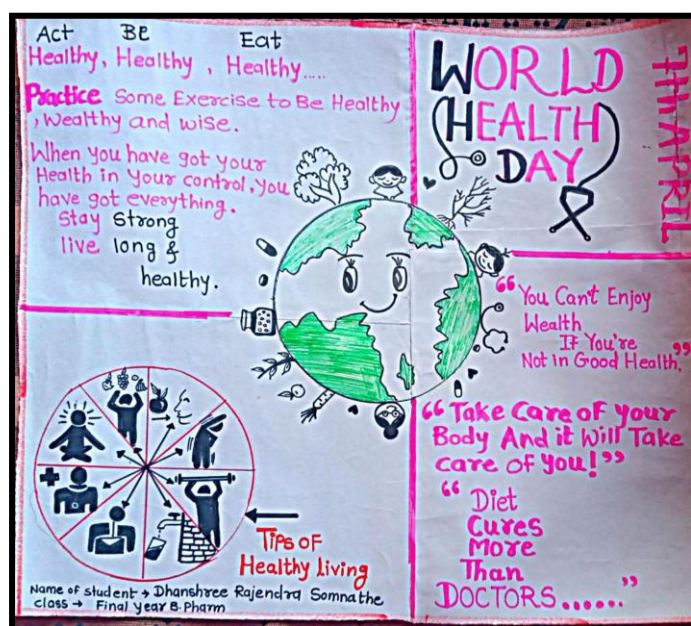 Act BE Eat
Healthy, Healthy, Healthy.....
Practice Some Exercise to Be Healthy
, Wealthy and wise.
When you have got your
Health in your control, you
have got everything.
Stay Strong
live long &
healthy.
WORLD
HEALTH
DAY
7th APRIL
"You Can't Enjoy
Wealth
If You're
Not in Good Health."
"Take Care of your
Body And it Will Take
care of You!"
"Diet
Cures
More
Than
DOCTORS......"
Tips of
Healthy living
Name of student → Dhanshree Rajendra Somnathe
class → Final Year B.Pharm